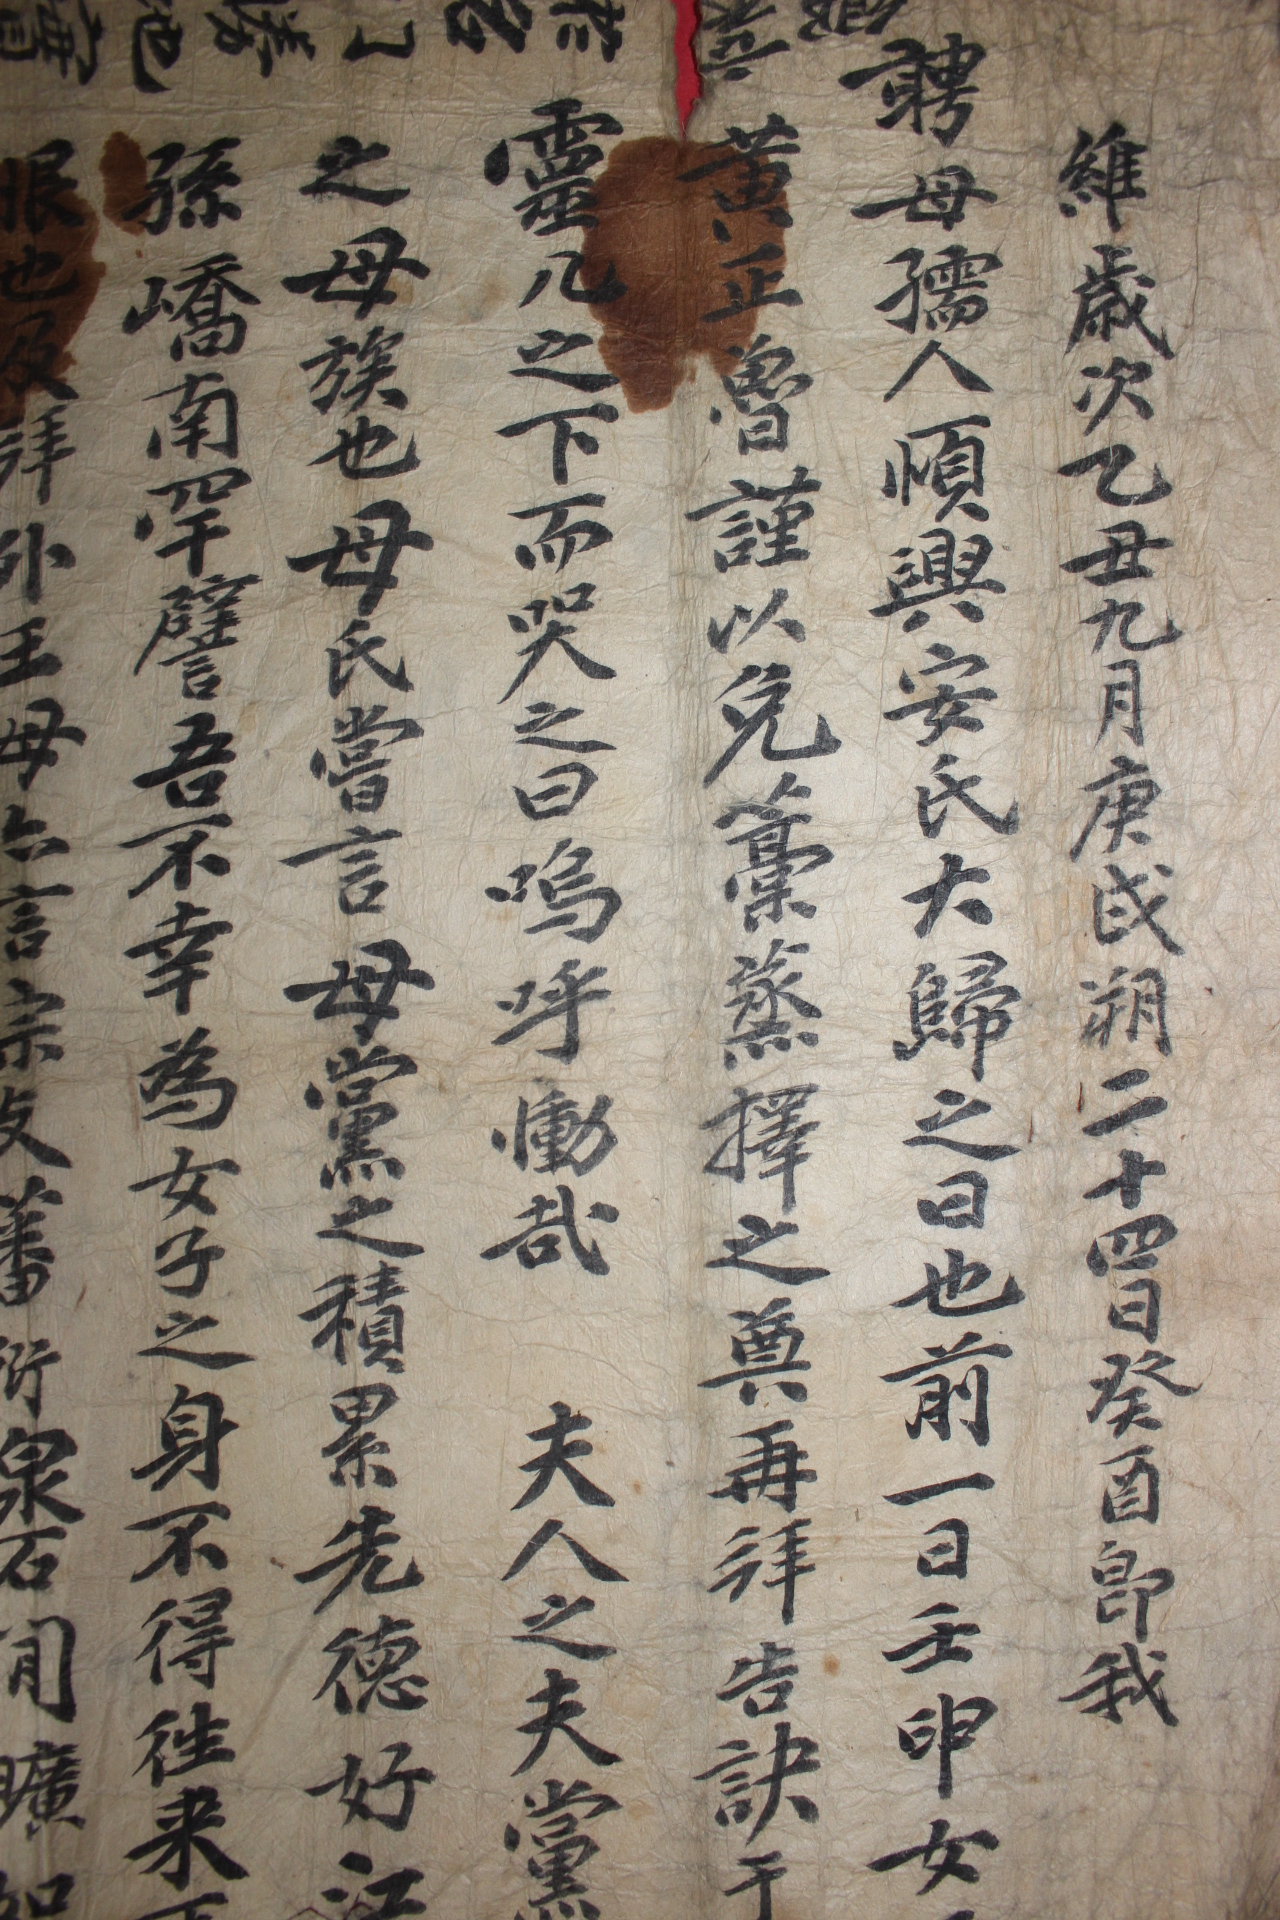 維歲次乙丑九月庚戌朔二十四日癸酉卽我
聘母孺人順興安氏大歸之日也前一日壬申女
黃正魯謹以兔藁蒸擇之奠再拜告訣于
靈几之下而哭之曰嗚呼慟哉 夫人之夫黨
之母族也母氏嘗言母黨之積累先德好江
孫嶠南罕譬吾不幸為女子之身不得往来
服也及拜外王母亦言宗支蕃衍泉石閒曠如